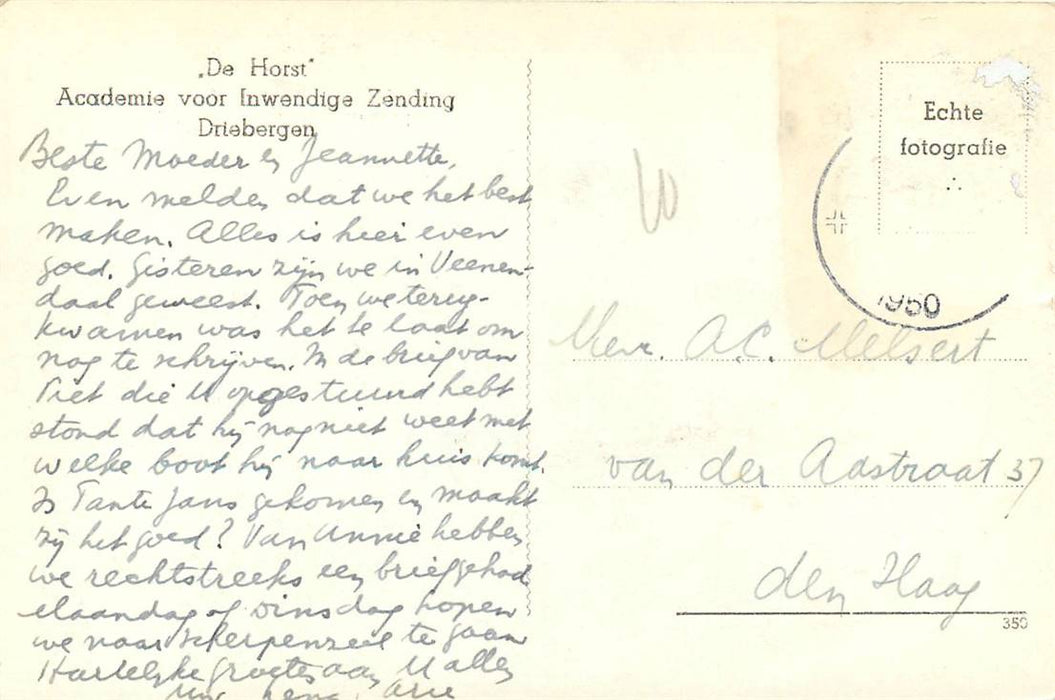 „De Horst"
Academie voor Inwendige Zending
Driebergen
Beste Moeder en Jeannette,
Even melden dat we het best
maken. Alles is hier even
goed. Gisteren zijn we in Veenen-
daal geweest. Toen we terug-
kwamen was het te laat om
nog te schrijven. In de brief van
Piet die U opgestuurd hebt
stond dat hij nog niet weet met
welke boot hij naar huis komt.
Is Tante Jans gekomen en maakt
zij het goed? Van Annie hebben
we rechtstreeks een brief gehad
Maandag of Dinsdag hopen
we naar Scherpenzeel te gaan
Hartelijke groeten aan U allen
Arie
Echte
fotografie
1950
Mevr. A.C. Melsert
van der Aastraat 37
den Haag
350